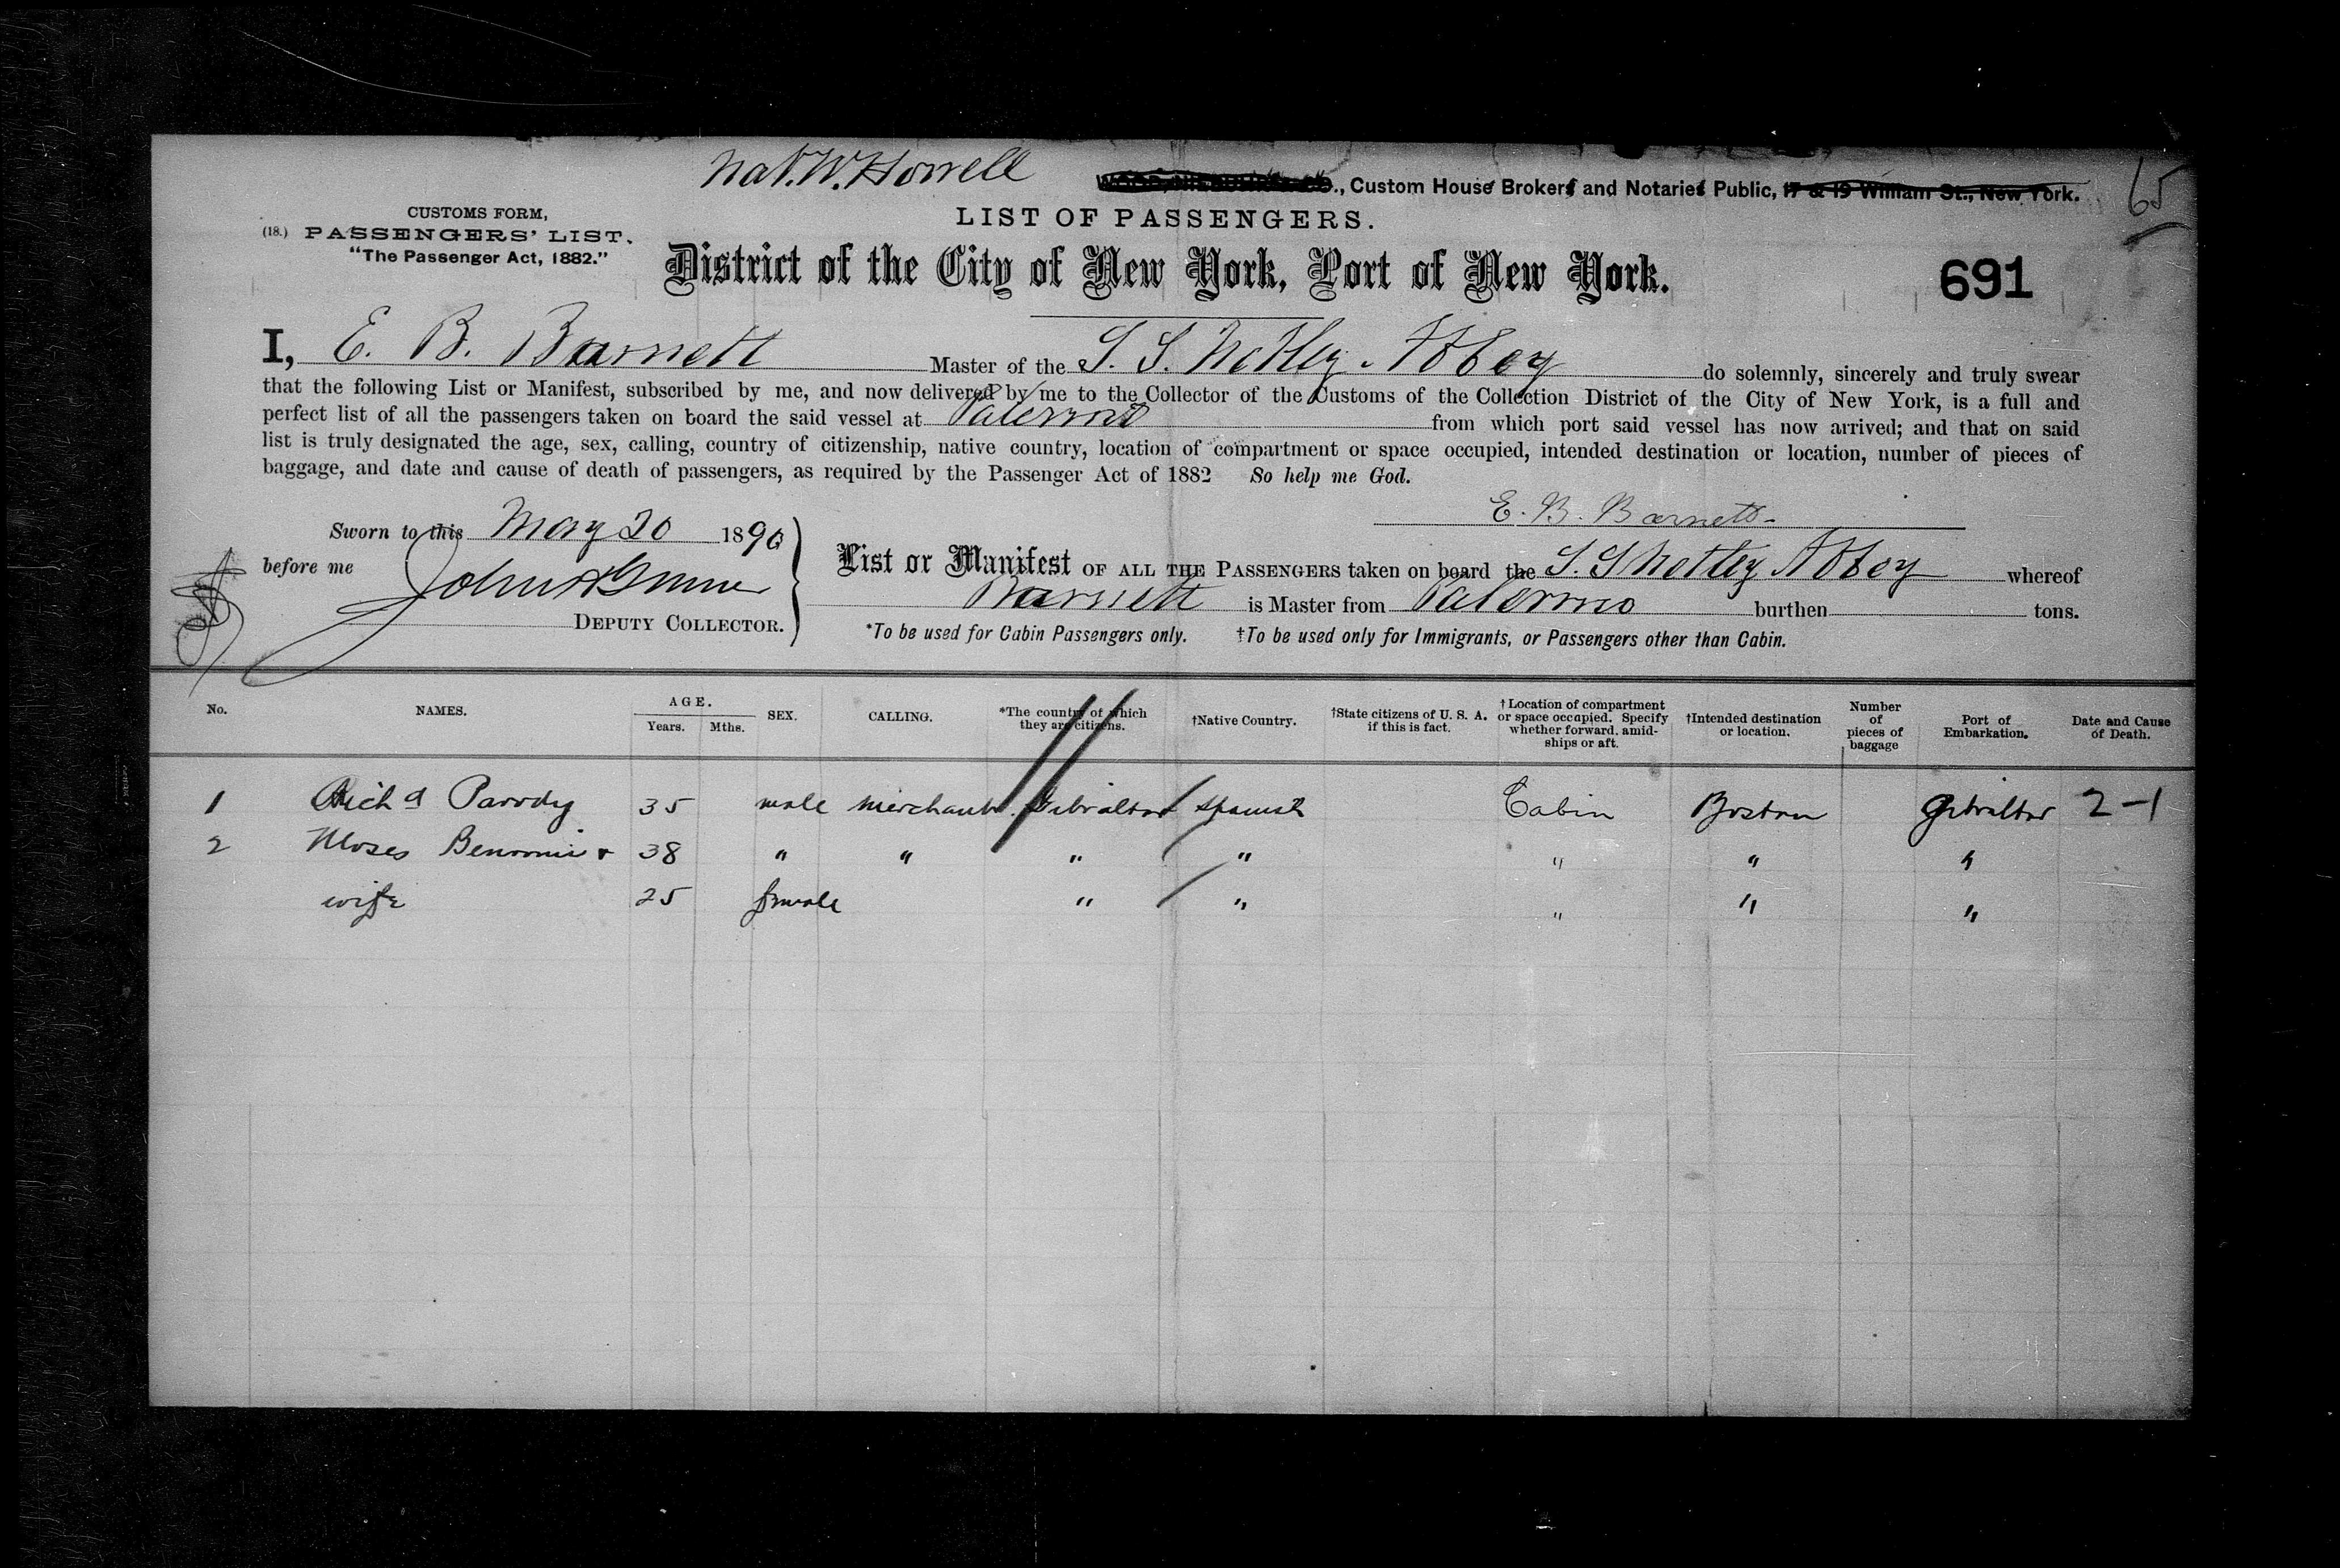 Nat. W. Howell
., Custom House Brokers and Notaries Public, 17 & 19 William St., New York.
65
CUSTOMS FORM,
(18.) PASSENGERS' LIST.
"The Passenger Act, 1882."
LIST OF PASSENGERS.
District of the City of New York, Port of New York.
691
I, E. B. Barnett Master of the S. S. Netley Abbey do solemnly, sincerely and truly swear
that the following List or Manifest, subscribed by me, and now delivered by me to the Collector of the Customs of the Collection District of the City of New York, is a full and
perfect list of all the passengers taken on board the said vessel at Palermo from which port said vessel has now arrived; and that on said
list is truly designated the age, sex, calling, country of citizenship, native country, location of compartment or space occupied, intended destination or location, number of pieces of
baggage, and date and cause of death of passengers, as required by the Passenger Act of 1882 So help me God.
E. B. Barnett
Sworn to this May 20 1890
before me John
DEPUTY COLLECTOR.
List or Manifest OF ALL THE PASSENGERS taken on board the S. S Netley Abbey whereof
Barnett is Master from Palermo burthen tons.
*To be used for Cabin Passengers only. †To be used only for Immigrants, or Passengers other than Cabin.
No. NAMES. AGE. Years. Mths. SEX. CALLING. *The country of which they are citizens. †Native Country. †State citizens of U. S. A. if this is fact. †Location of compartment or space occupied. Specify whether forward, amidships or aft. †Intended destination or location. Number of pieces of baggage Port of Embarkation. Date and Cause of Death.
1 Richd Parody 35 male merchant. Gibraltar Spanish Cabin Boston Gibraltar 2-1
2 Moses 38 " " " " " " "
wife 25 female " " " " "